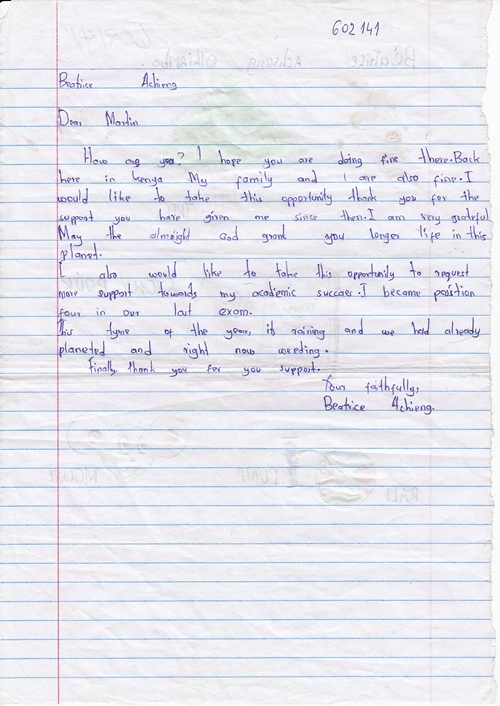 602141
Beatrice Achieng
Dear Martin
How are you? I hope you are doing fine there. Back
here in kenya My family and I are also fine. I
would like to take this opportunity thank you for the
support you have given me since then. I am very grateful
May the almeight God grant you longer life in this
planet.
I also would like to take this opportunity to request
more support towards my academic succaes. I became position
four in our last exam.
This tyme of the year, it raining and we had already
planeted and right now weeding.
Finally, thank you for you support.
Your faithfully,
Beatrice Achieng.